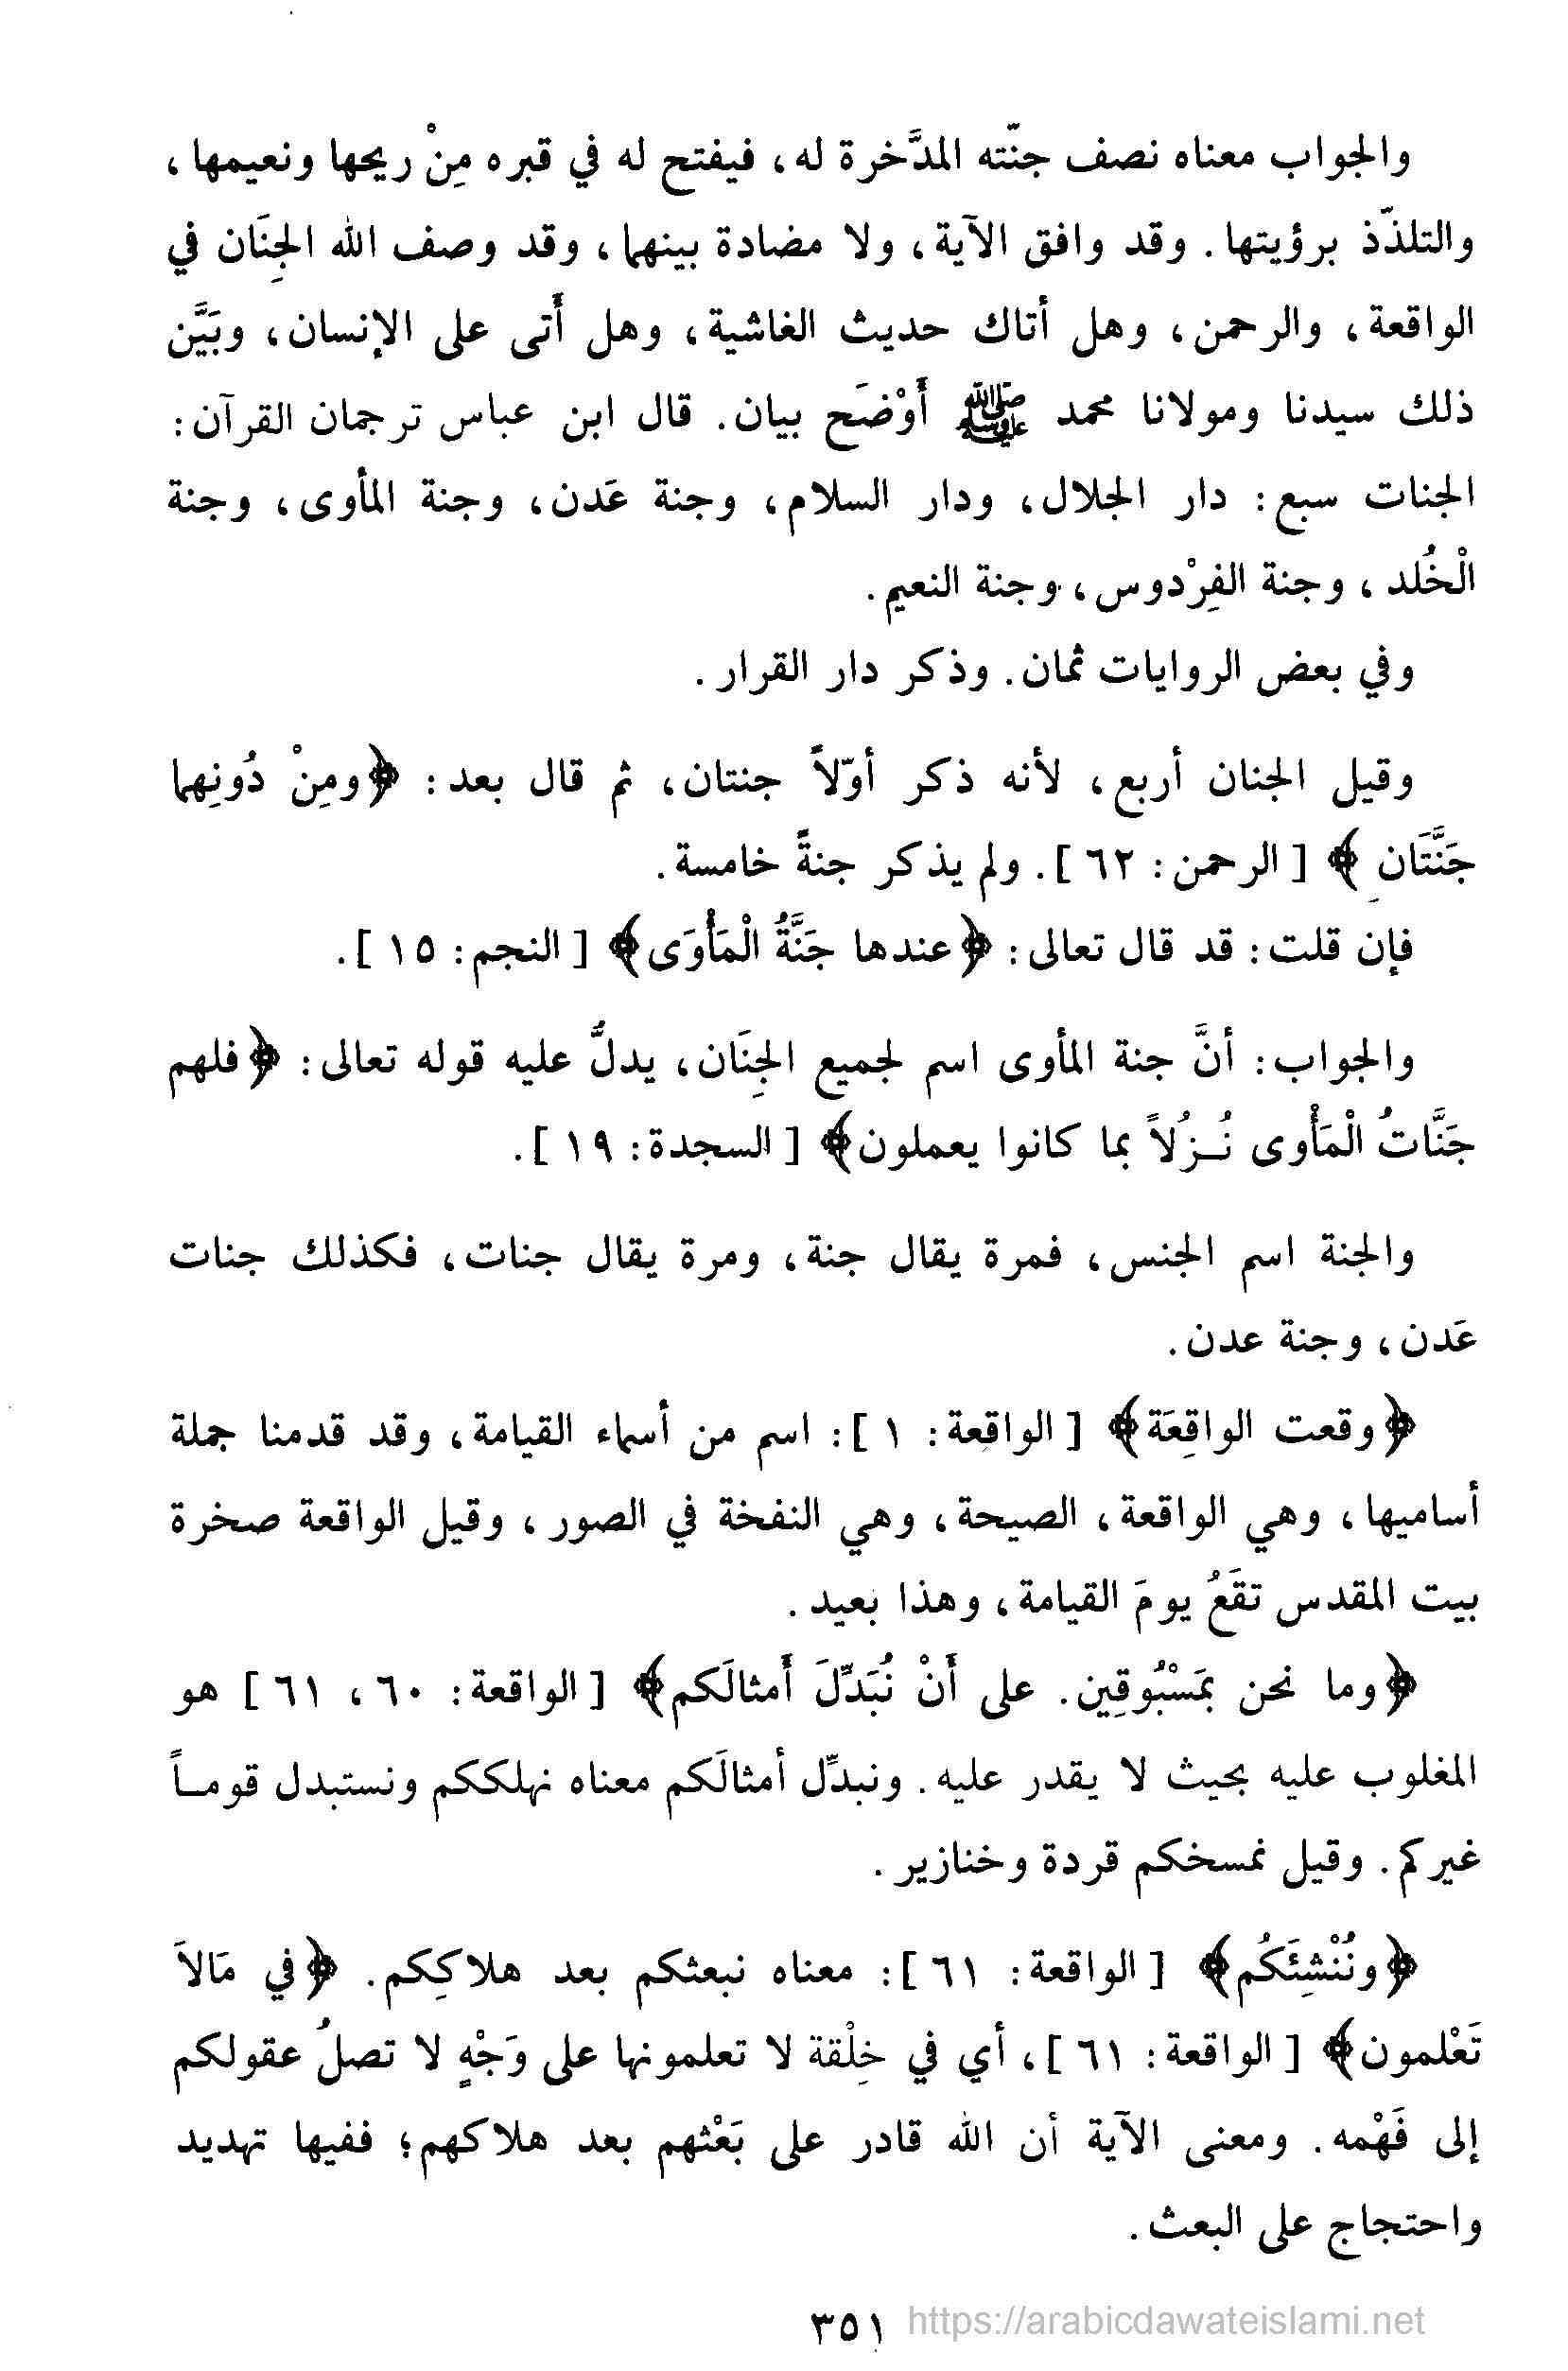 والجواب معناه نصف جنّته المدَّخرة له، فيفتح له في قبره مِنْ ريحها ونعيمها،
والتلذّذ برؤيتها. وقد وافق الآية، ولا مضادة بينهما، وقد وصف الله الجِنَان في
الواقعة، والرحمن، وهل أتاك حديث الغاشية، وهل أَتى على الإنسان، وبَيَّن
ذلك سيدنا ومولانا محمد ﷺ أَوْضَح بيان. قال ابن عباس ترجمان القرآن:
الجنات سبع: دار الجلال، ودار السلام، وجنة عَدن، وجنة المأوى، وجنة
الْخُلد، وجنة الفِرْدوس، وجنة النعيم.
وفي بعض الروايات ثمان. وذكر دار القرار.
وقيل الجنان أربع، لأنه ذكر أوّلاً جنتان، ثم قال بعد: ﴿ومِنْ دُونِهما
جَنَّتَانِ﴾ [الرحمن: ٦٢]. ولم يذكر جنةً خامسة.
فإن قلت: قد قال تعالى: ﴿عندها جَنَّةُ الْمَأْوَى﴾ [النجم: ١٥].
والجواب: أنَّ جنة المأوى اسم لجميع الجِنَان، يدلُّ عليه قوله تعالى: ﴿فلهم
جَنَّاتُ الْمَأْوى نُــزُلاً بما كانوا يعملون﴾ [السجدة: ١٩].
والجنة اسم الجنس، فمرة يقال جنة، ومرة يقال جنات، فكذلك جنات
عَدن، وجنة عدن.
﴿وقعت الواقِعَة﴾ [الواقعة: ١]: اسم من أسماء القيامة، وقد قدمنا جملة
أساميها، وهي الواقعة، الصيحة، وهي النفخة في الصور، وقيل الواقعة صخرة
بيت المقدس تقَعُ يومَ القيامة، وهذا بعيد.
﴿وما نحن بمَسْبُوقِين. على أَنْ نُبَدِّلَ أَمثالَكم﴾ [الواقعة: ٦٠، ٦١] هو
المغلوب عليه بحيث لا يقدر عليه. ونبدِّل أمثالَكم معناه نهلككم ونستبدل قومــاً
غيركم. وقيل نمسخكم قردة وخنازير.
﴿ونُنْشِئَكُم﴾ [الواقعة: ٦١]: معناه نبعثكم بعد هلاكِكم. ﴿في مَالاَ
تَعْلمون﴾ [الواقعة: ٦١]، أي في خِلْقة لا تعلمونها على وَجْهٍ لا تصلُ عقولكم
إلى فَهْمه. ومعنى الآية أن الله قادر على بَعْثهم بعد هلاكهم؛ ففيها تهديد
واحتجاج على البعث.
٣٥١ https://arabicdawateislami.net